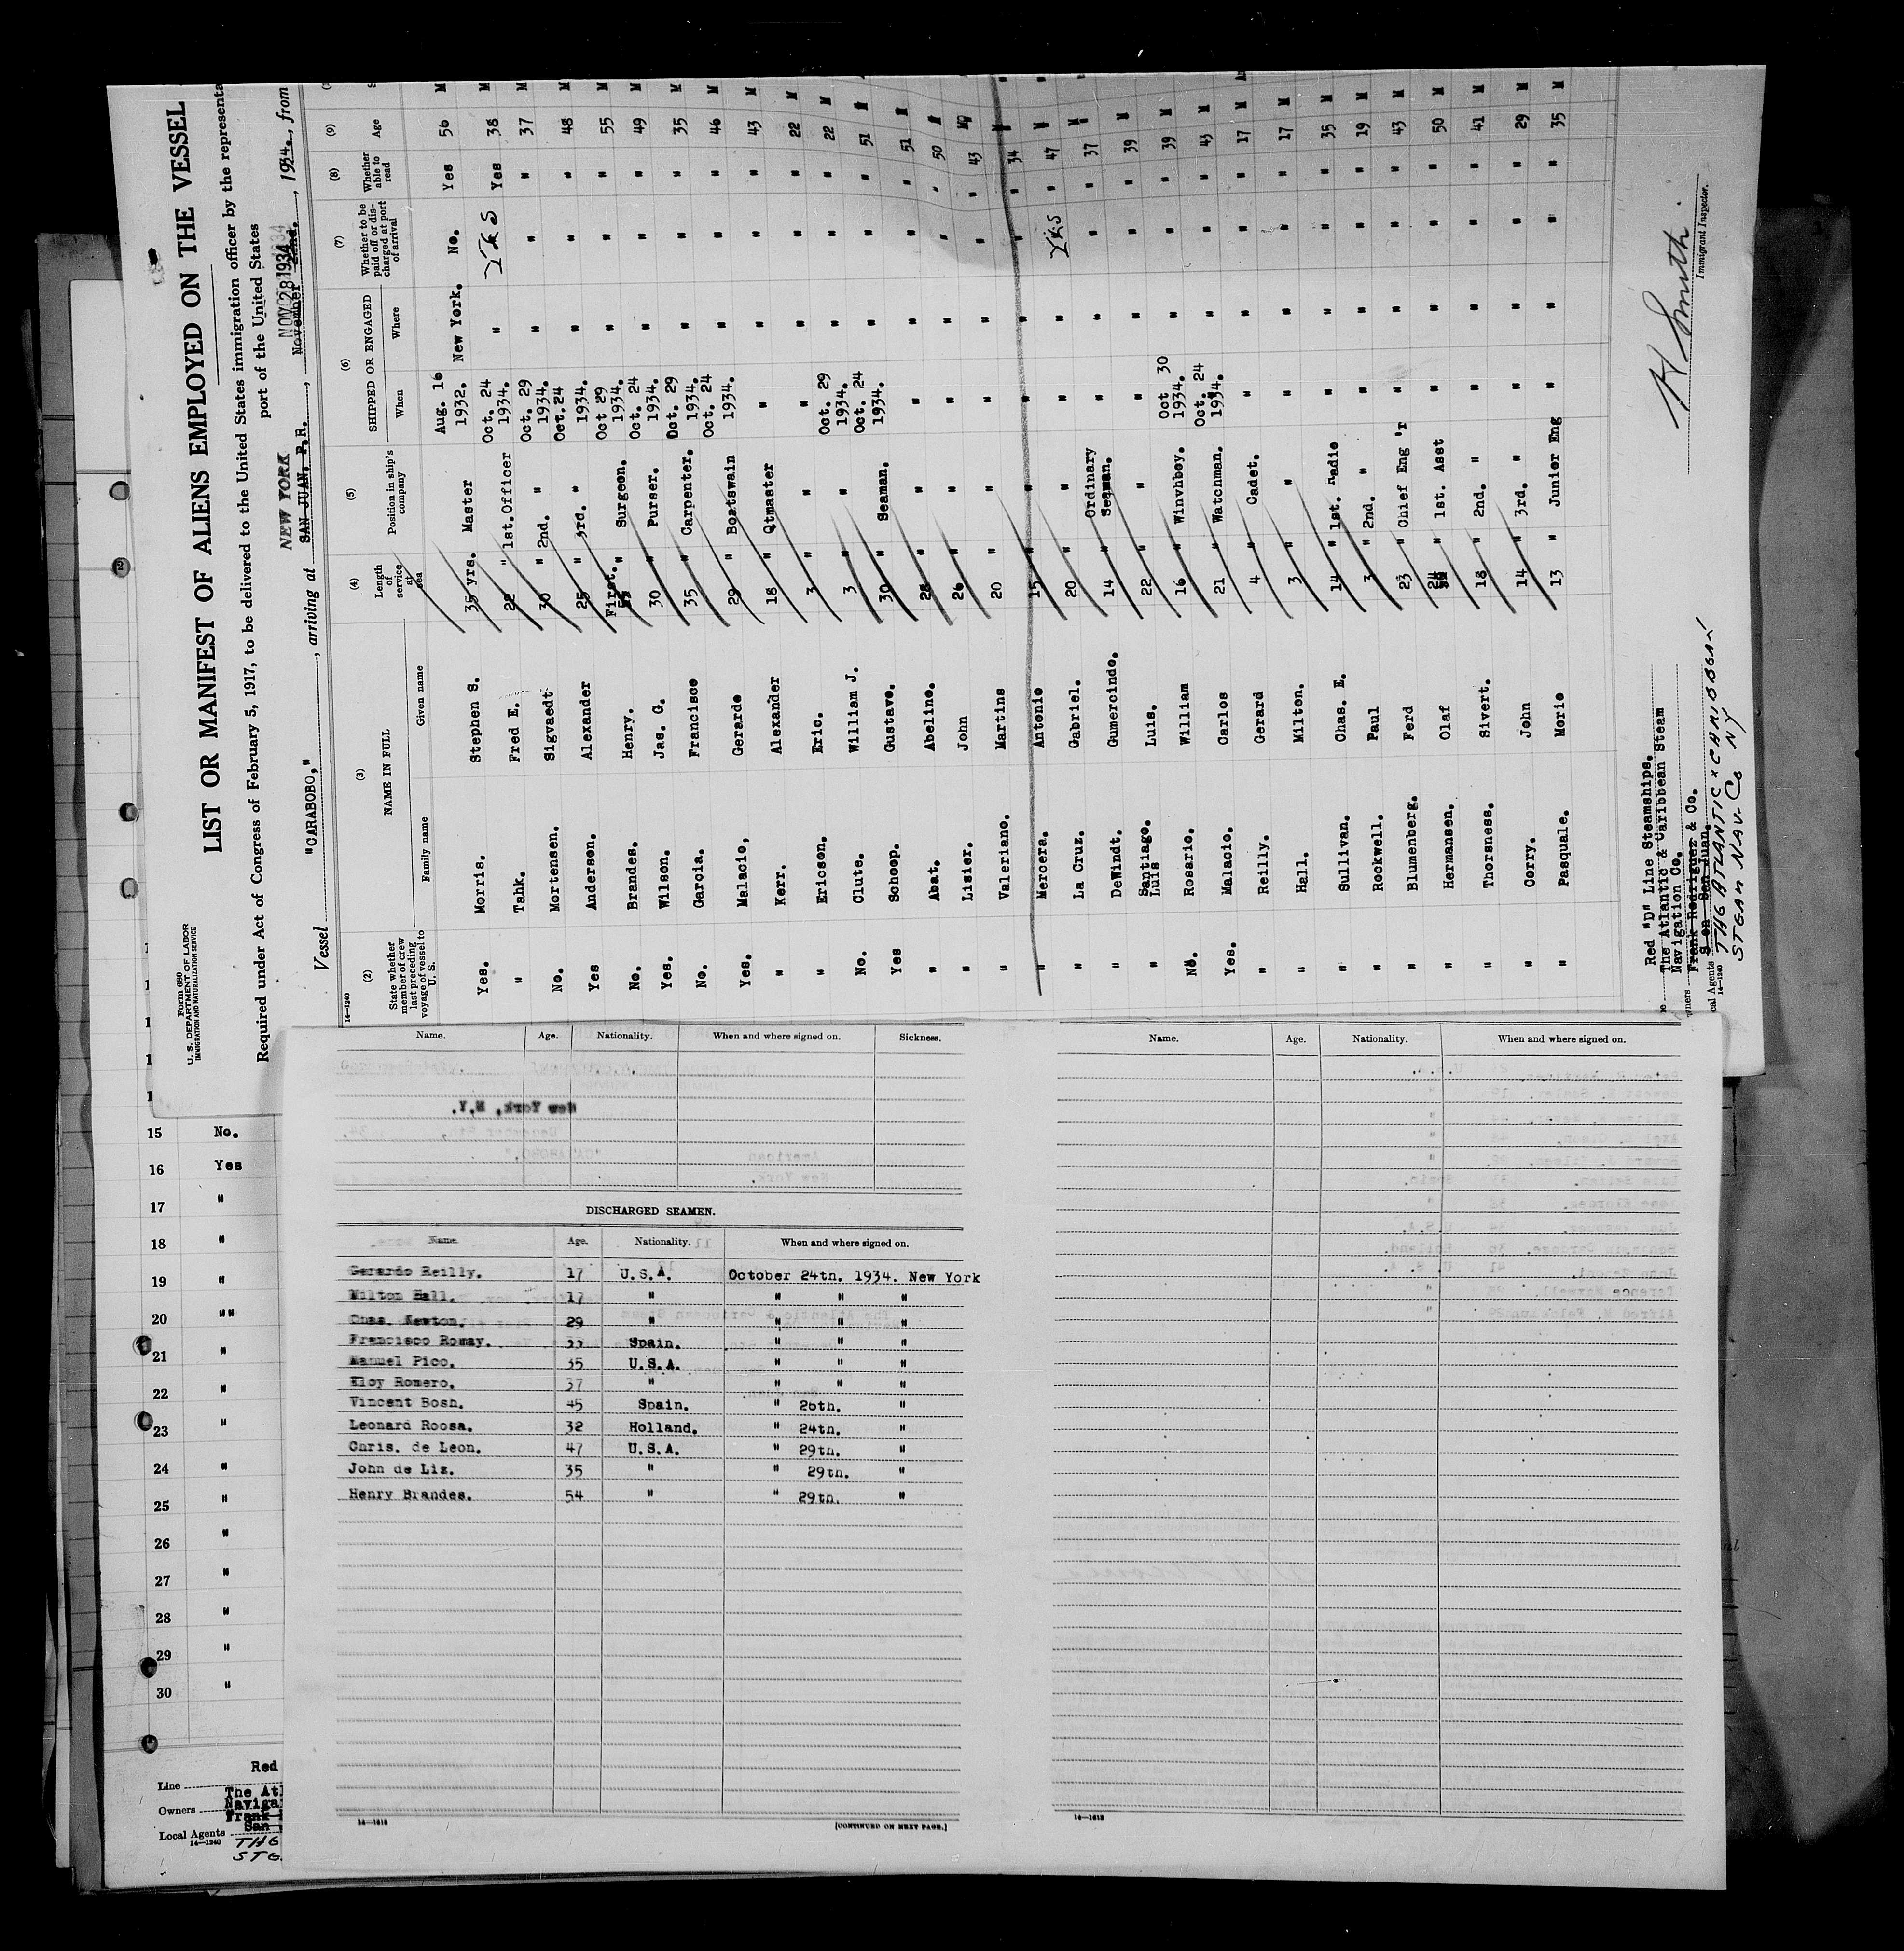 Form 680
U. S. DEPARTMENT OF LABOR
IMMIGRATION AND NATURALIZATION SERVICE
LIST OR MANIFEST OF ALIENS EMPLOYED ON THE VESSEL
Required under Act of Congress of February 5, 1917, to be delivered to the United States immigration officer by the representa
port of the United States
NEW YORK NOV 28 1934
Vessel "CARABOBO," , arriving at SAN JUAN. P.R. , November 2nd. , 1934., from
14—1240
(2) (3) (4) (5) (6) (7) (8) (9)
State whether member of crew last preceding voyage of vessel to U. S. NAME IN FULL Length of service at sea Position in ship's company SHIPPED OR ENGAGED Whether to be paid off or discharged at port of arrival Whether able to read Age
Family name Given name When Where
Yes. Morris. Stephen S. 35 yrs. Master Aug. 16 1932. New York. No. Yes 56 M
" Tahk. Fred E. 22 " 1st.Officer Oct. 24 1934. " Yes Yes 38 M
No. Mortensen. Sigvaedt 30 " 2nd. " Oct. 29 1934. " " " 37 M
Yes Anderson. Alexander 25 " 3rd. " Oct.24 1934. " " " 48 M
No. Brandes. Henry. First. " Surgeon. Oct 29 1934. " " " 55 M
Yes. Wilson. Jas. G. 30 " Purser. Oct. 24 1934. " " " 49 M
No. Garcia. Francisco 35 " Carpenter. Oct. 29 1934. " " " 35 M
Yes. Malacio, Gerardo 29 " Boatswain Oct. 24 1934. " " " 46 M
" Kerr. Alexander 18 " Qtmaster " " " " 43 M
" Ericson. Eric. 3 " " " " " " 22 M
No. Clute. William J. 3 " " Oct. 29 1934. " " " 22 M
Yes Schoop. Gustave. 30 " Seaman. Oct. 24 1934. " " " 51 M
" Abat. Abelino. 28 " " " " " " 51 M
" Lisier. John 26 " " " " " " 50 M
" Valeriano. Martins 20 " " " " " " 43 M
" Mercera. Antonio 15 " " " " " " 34 M
" La Cruz. Gabriel. 20 " " " " Yes " 47 M
" DeWindt. Gumercindo. 14 " Ordinary Seaman. " " " " 37 M
" Santiago. Luis Luis. 22 " " " " " " 39 M
No. Rosario. William 16 " Winvhboy. Oct 30 1934. " " " 39 M
Yes. Malacio. Carlos 21 " Watchman. Oct. 24 1934. " " " 43 M
" Reilly. Gerard 4 " Cadet. " " " " 17 M
" Hall. Milton. 3 " " " " " " 17 M
" Sullivan. Chas. E. 14 " 1st. Radio " " " " 35 M
" Rockwell. Paul 3 " 2nd. " " " " " 19 M
" Blumenberg. Ferd 23 " Chief Eng'r " " " " 43 M
" Hermansen. Olaf 24 " 1st. Asst " " " " 50 M
" Thorsness. Sivert. 18 " 2nd. " " " " " 41 M
" Corry. John 14 " 3rd. " " " " " 29 M
" Pasquale. Morie 13 " Junior Eng " " " " 35 M
Red "D" Line Steamships.
The Atlantic & Carribbean Steam
Navigation Co.
Frank Rodriguez & Co.
San Juan.
cal Agents THE ATLANTIC & CARIBBEAN
14—1240
STEAM NAV. Co NY
H Smith.
Immigrant Inspector.
15 No.
16 Yes
17 "
18 "
19 "
20 ""
21 "
22 "
23 "
24 "
25 "
26 "
27 "
28 "
29 "
30 "
Red
Line
The Atl
Owners Naviga
Frank
San
Local Agents
14—1240
THE
STE
Name. Age. Nationality. When and where signed on. Sickness.
New York, N.Y.
DISCHARGED SEAMEN.
Name. Age. Nationality. When and where signed on.
Gerardo Reilly. 17 U.S.A. October 24th. 1934. New York
Milton Hall. 17 " " " "
Chas. Newton. 29 " " " "
Francisco Romay. 33 Spain. " " "
Manuel Pico. 35 U.S.A. " " "
Eloy Romero. 37 " " " "
Vincent Bosh. 45 Spain. " 26th. "
Leonard Roosa. 32 Holland. " 24th. "
Chris. de Leon. 47 U.S.A. " 29th. "
John de Liz. 35 " " 29th. "
Henry Brandes. 54 " " 29th. "
14—1212
[CONTINUED ON NEXT PAGE.]
Name. Age. Nationality. When and where signed on.
14—1212